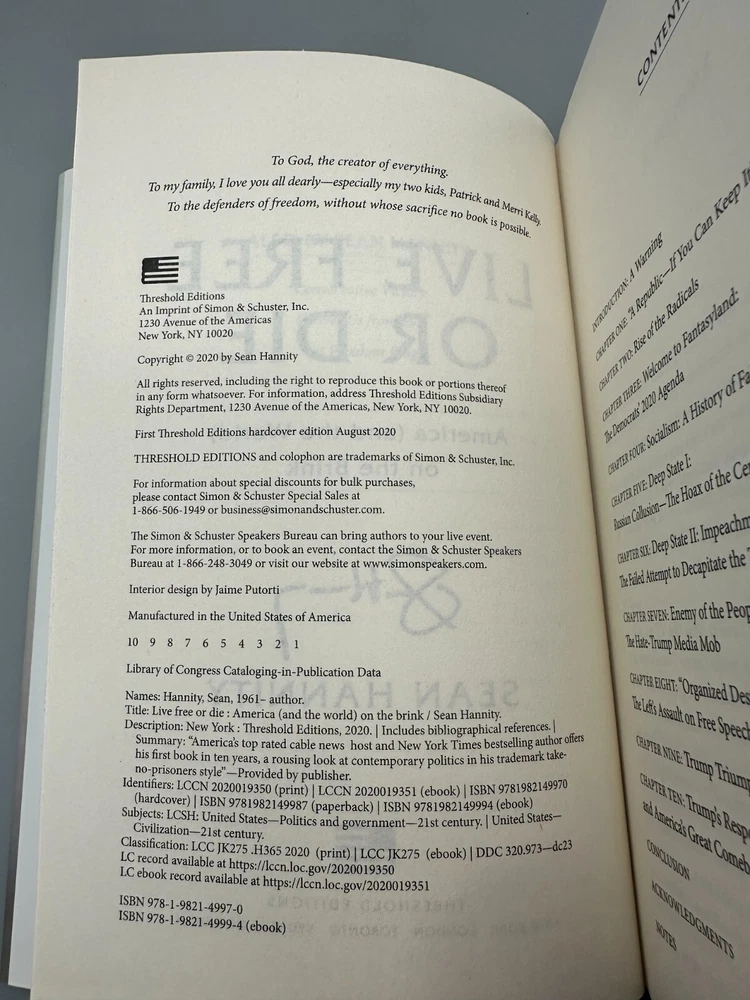 To God, the creator of everything.
To my family, I love you all dearly—especially my two kids, Patrick and Merri Kelly.
To the defenders of freedom, without whose sacrifice no book is possible.
Threshold Editions
An Imprint of Simon & Schuster, Inc.
1230 Avenue of the Americas
New York, NY 10020
Copyright © 2020 by Sean Hannity
All rights reserved, including the right to reproduce this book or portions thereof
in any form whatsoever. For information, address Threshold Editions Subsidiary
Rights Department, 1230 Avenue of the Americas, New York, NY 10020.
First Threshold Editions hardcover edition August 2020
THRESHOLD EDITIONS and colophon are trademarks of Simon & Schuster, Inc.
For information about special discounts for bulk purchases,
please contact Simon & Schuster Special Sales at
1-866-506-1949 or business@simonandschuster.com.
The Simon & Schuster Speakers Bureau can bring authors to your live event.
For more information, or to book an event, contact the Simon & Schuster Speakers
Bureau at 1-866-248-3049 or visit our website at www.simonspeakers.com.
Interior design by Jaime Putorti
Manufactured in the United States of America
10 9 8 7 6 5 4 3 2 1
Library of Congress Cataloging-in-Publication Data
Names: Hannity, Sean, 1961– author.
Title: Live free or die : America (and the world) on the brink / Sean Hannity.
Description: New York : Threshold Editions, 2020. | Includes bibliographical references. |
Summary: “America’s top rated cable news host and New York Times bestselling author offers
his first book in ten years, a rousing look at contemporary politics in his trademark take-
no-prisoners style”—Provided by publisher.
Identifiers: LCCN 2020019350 (print) | LCCN 2020019351 (ebook) | ISBN 9781982149970
(hardcover) | ISBN 9781982149987 (paperback) | ISBN 9781982149994 (ebook)
Subjects: LCSH: United States—Politics and government—21st century. | United States—
Civilization—21st century.
Classification: LCC JK275 .H365 2020 (print) | LCC JK275 (ebook) | DDC 320.973—dc23
LC record available at https://lccn.loc.gov/2020019350
LC ebook record available at https://lccn.loc.gov/2020019351
ISBN 978-1-9821-4997-0
ISBN 978-1-9821-4999-4 (ebook)
CONTENTS
INTRODUCTION: A Warning
CHAPTER ONE: “A Republic—If You Can Keep It
CHAPTER TWO: Rise of the Radicals
CHAPTER THREE: Welcome to Fantasyland:
The Democrats’ 2020 Agenda
CHAPTER FOUR: Socialism: A History of Fa
CHAPTER FIVE: Deep State I:
Russian Collusion—The Hoax of the Cen
CHAPTER SIX: Deep State II: Impeachm
The Failed Attempt to Decapitate the
CHAPTER SEVEN: Enemy of the Peop
The Hate-Trump Media Mob
CHAPTER EIGHT: “Organized Des
The Left’s Assault on Free Speech
CHAPTER NINE: Trump Trium
CHAPTER TEN: Trump’s Resp
and America’s Great Comeb
CONCLUSION
ACKNOWLEDGMENTS
NOTES